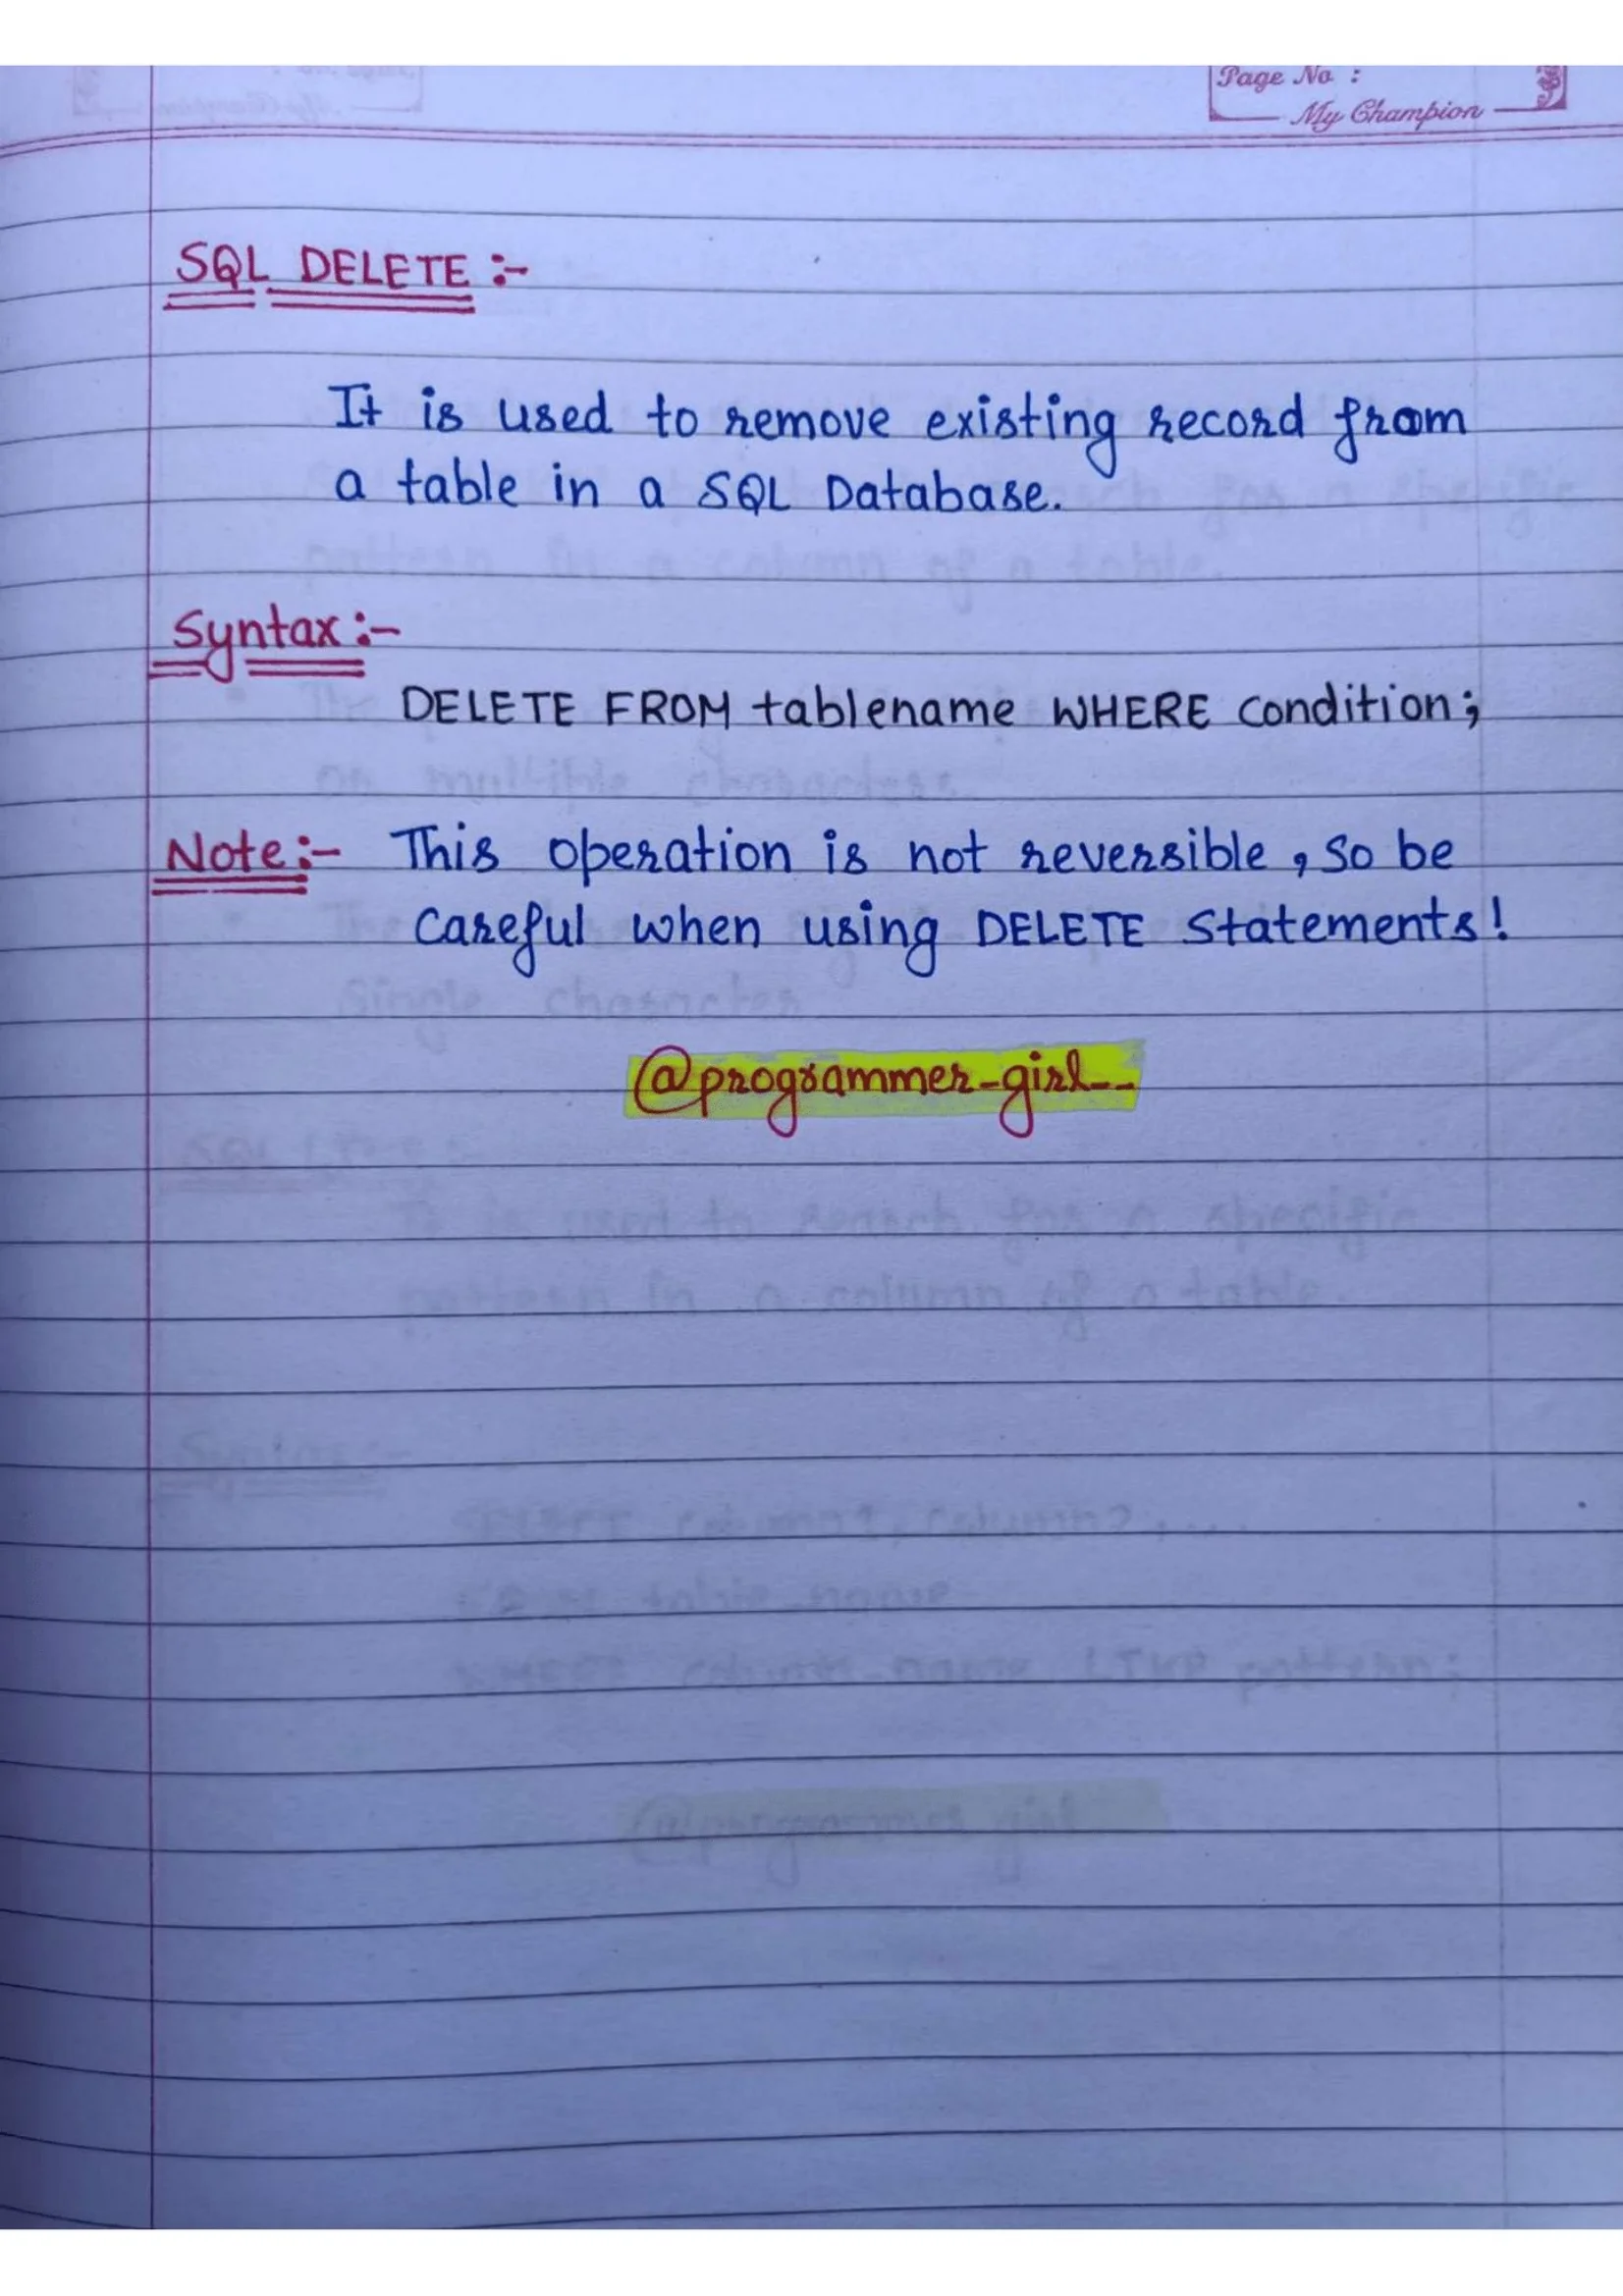 Page No :
My Champion
SQL DELETE :-
It is used to remove existing record from
a table in a SQL Database.
Syntax :-
DELETE FROM tablename WHERE condition;
Note :- This operation is not reversible, so be
careful when using DELETE Statements!
@programmer-girl--